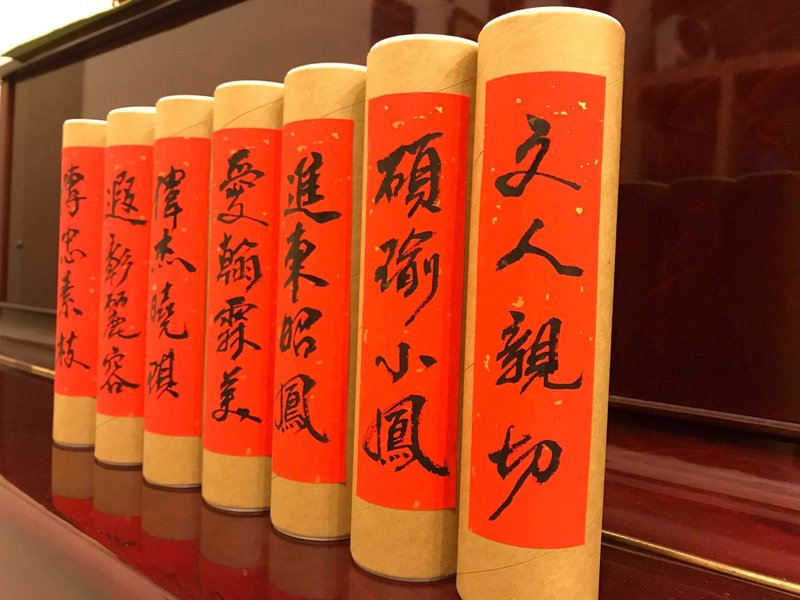 文人親切
碩瑜小鳳
進東昭鳳
愛翰霖美
偉杰曉琪
遐彰麗容
忠素枝